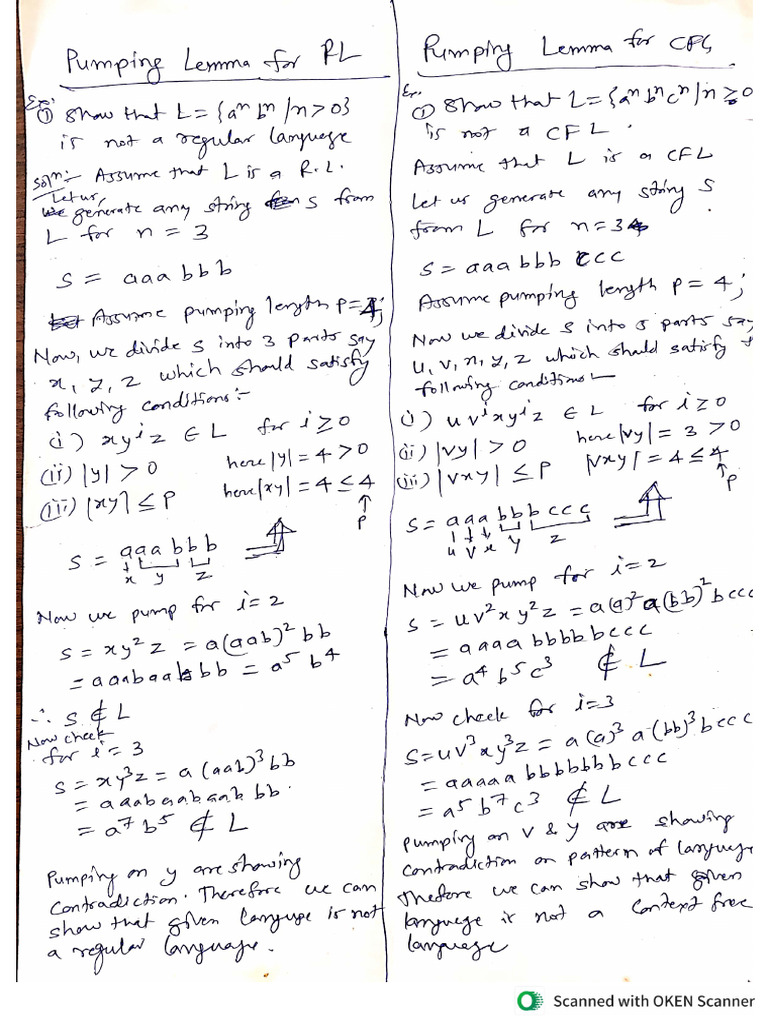 Pumping Lemma for RL
Ex:
① Show that L = {aⁿ bⁿ / n > 0}
is not a regular language
Soln:- Assume that L is a R.L.
Let us,
generate any string s from
L for n = 3
S = aaabbb
Assume pumping length p=4;
Now, we divide s into 3 parts say
x, y, z which should satisfy
following conditions:-
(i) xyⁱz ∈ L for i ≥ 0
(ii) |y| > 0 here |y| = 4 > 0
(iii) |xy| ≤ P here |xy| = 4 ≤ 4
P
S = aaabbb
x y z
Now we pump for i=2
S = xy²z = a(aab)²bb
= aaabaabbb = a⁵b⁴
∴ S ∉ L
Now check
for i = 3
S = xy³z = a(aab)³bb
= aaabaabaabbb.
= a⁷b⁵ ∉ L
Pumping on y are showing
contradiction. Therefore we can
show that given languge is not
a regular language.
Pumping Lemma for CFG
Ex.
① Show that L = {aⁿbⁿcⁿ / n ≥ 0
is not a CFL.
Assume that L is a CFL
Let us generate any string S
from L for n=3
S = aaabbbccc
Assume pumping length p = 4;
Now we divide s into 5 parts say
u, v, x, y, z which should satisfy
following conditions:-
(i) uvⁱxyⁱz ∈ L for i ≥ 0
(ii) |vy| > 0 here |vy| = 3 > 0
(iii) |vxy| ≤ P |vxy| = 4 ≤ 4
P
S = aaabbbccc
u v x y z
Now we pump for i=2
S = uv²xy²z = a(a)²a(bb)²bccc
= aaaabbbbbccc
= a⁴b⁵c³ ∉ L
Now check for i=3
S=uv³xy³z = a(a)³a(bb)³bccc
= aaaaabbbbbbbccc
= a⁵b⁷c³ ∉ L
Pumping on v & y are showing
contradiction on pattern of language
therefore we can show that given
language is not a context free
language
Scanned with OKEN Scanner